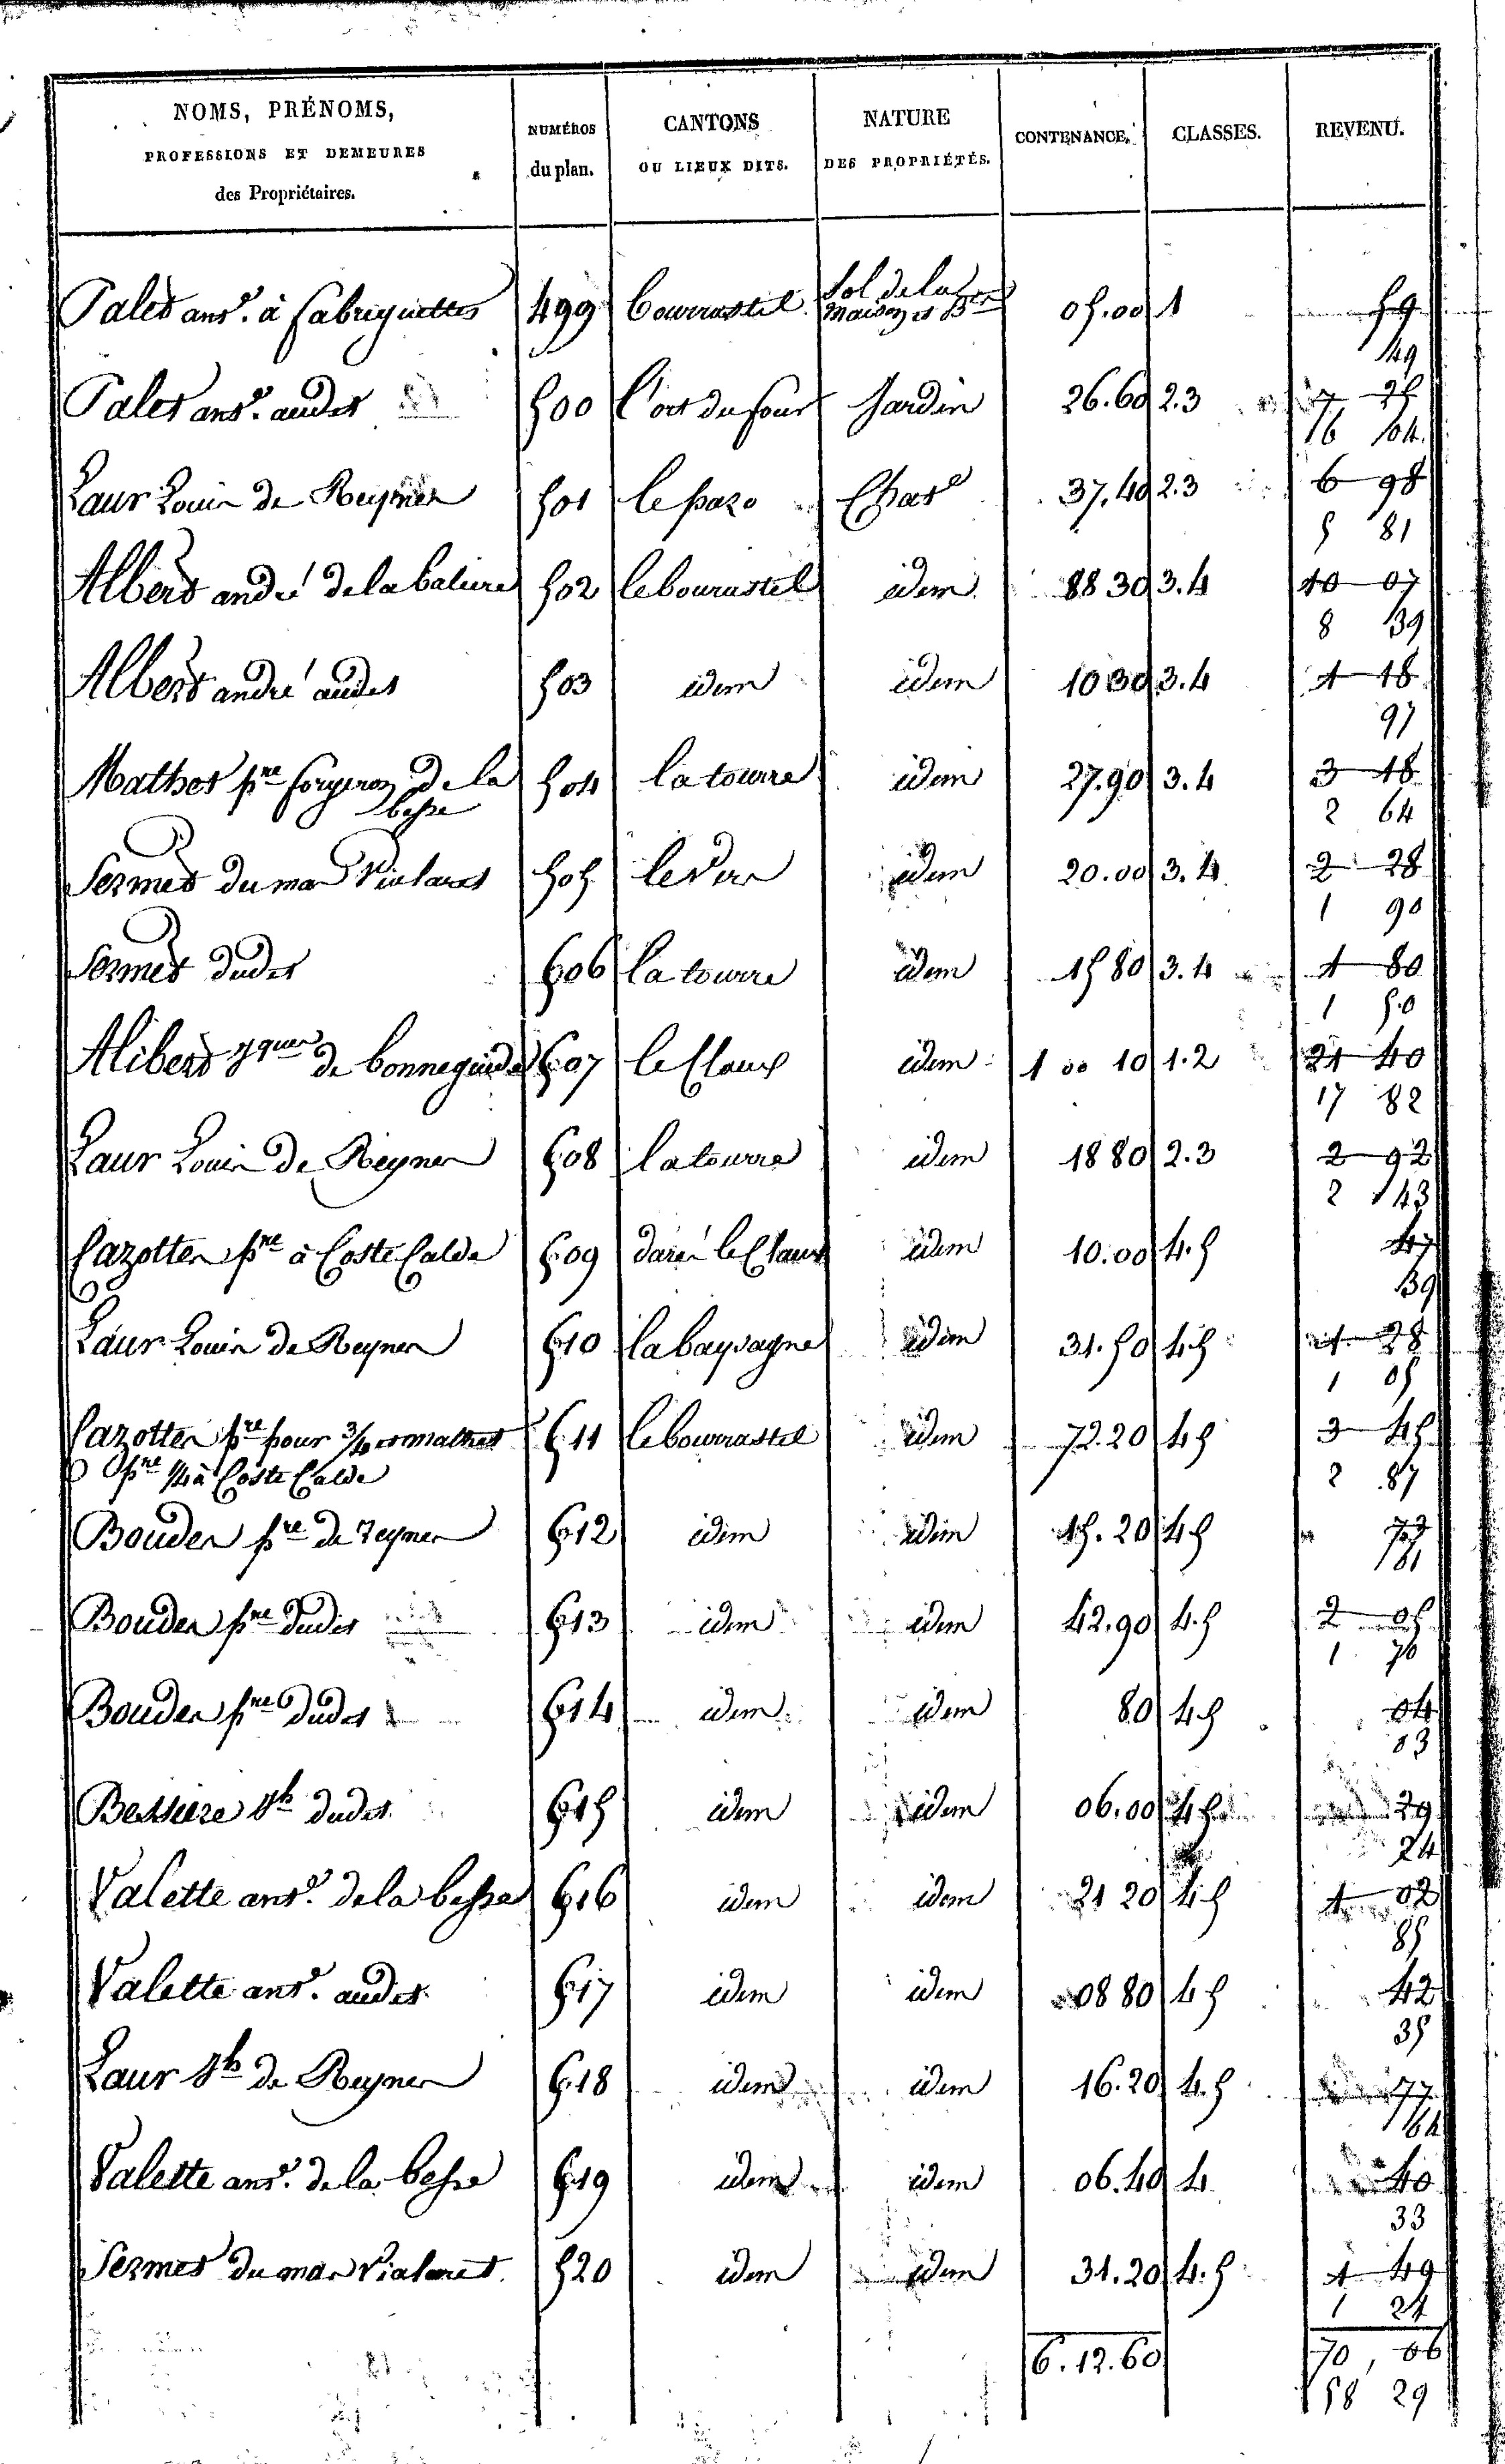 NOMS, PRÉNOMS,
PROFESSIONS ET DEMEURES
des Propriétaires.
NUMÉROS
du plan.
CANTONS
OU LIEUX DITS.
NATURE
DES PROPRIÉTÉS.
CONTENANCE.
CLASSES.
REVENU.
Palet ant.e à fabriguettes 499 bourrastel Sol de la maison et B 05.00 1 59
49
Palet ant.e audit 500 l'ort du four Jardin 26.60 2.3 7 25
6 04
Laur Louis de Reynes 501 le pazo Chat 37.40 2.3 6 98
5 81
Albert andré de la 502 le bourastel idem 88 30 3.4 10 07
8 39
Albert andré audit 503 idem idem 10 30 3.4 1 18
97
Mathet pre forgeron de la besse 504 la tourre idem 27.90 3.4 3 18
2 64
Sermet du mas Vialaret 505 idem 20.00 3.4 2 28
1 90
Sermet dudit 506 la tourre idem 15 80 3.4 1 80
1 50
Alibert de bonneguide 507 le Claux idem 1 00 10 1.2 21 40
17 82
Laur Louis de Reynes 508 la tourre idem 18 80 2.3 2 92
2 43
Cazottes pre à Coste Calde 509 darré le Claux idem 10.00 4.5 47
39
Laur Louis de Reynes 510 la baysagne idem 31.50 4.5 1 28
1 05
Cazottes pre pour 3/4 et mathet 511 le bourrastel idem 72.20 4.5 3 45
pre 1/4 à Coste Calde 2 87
Boudes pre de Reynes 512 idem idem 15.20 4.5 73
61
Boudes pre dudit 513 idem idem 42.90 4.5 2 05
1 70
Boudes pre dudit 514 idem idem 80 4.5 04
03
Bessiere Jh dudit 515 idem idem 06.00 4.5 29
24
Valette ant.e de la besse 516 idem idem 21 20 4.5 1 02
85
Valette ant.e audit 517 idem idem 08 80 4.5 42
35
Laur Jh de Reynes 518 idem idem 16.20 4.5 77
64
Valette ant.e de la besse 519 idem idem 06.40 4 40
33
Sermet du mas Vialaret 520 idem idem 31.20 4.5 1 49
1 24
6.12.60 70, 06
58 29